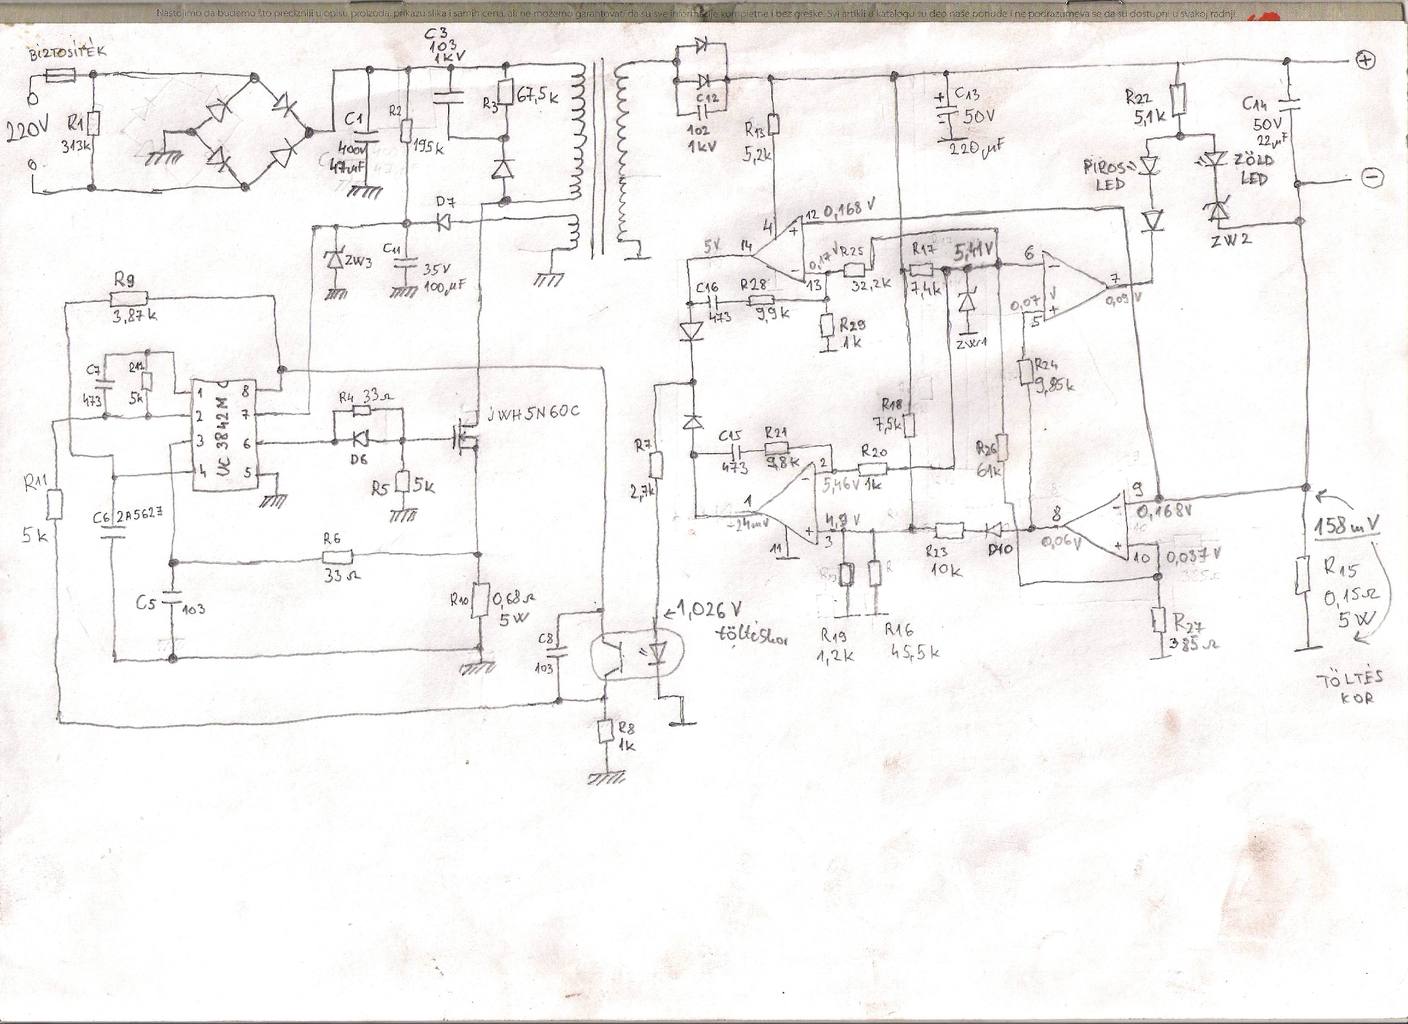 Nastojimo da budemo što precizniji u opisu proizvoda, prikazu slika i samih cena, ali ne možemo garantovati da su sve informacije kompletne i bez greške. Svi artikli u katalogu su deo naše ponude i ne podrazumeva se da su dostupni u svakoj radnji.
BIZTOSÍTÉK
220V
R1
313k
C1
400V
47µF
R2
195k
C3
103
1KV
R3
67,5k
D7
ZW3
C11
35V
100µF
C12
102
1KV
R13
5,2k
+
C13
50V
220µF
R22
5,1k
PIROS
LED
ZÖLD
LED
ZW2
C14
50V
22µF
+
−
R9
3,87k
C7
473
R12
5k
1
2
3
4
UC 3842M
8
7
6
5
R4
33Ω
D6
R5
5k
JWH5N60C
R11
5k
C6
2A562J
C5
103
R6
33Ω
R10
0,68Ω
5W
C8
103
R8
1k
R7
2,7k
1,026V
töltéskor
5V
14
4
12
0,168V
0,17V
13
R25
32,2k
C16
473
R28
9,9k
R29
1k
R17
7,4k
5,41V
ZW1
6
7
0,09V
0,07V
5
R24
9,85k
R18
7,5k
R26
61k
C15
473
R21
9,8k
2
5,46V
R20
1k
1
-24mV
11
4,9V
3
R23
10k
D10
8
0,06V
9
0,168V
10
0,037V
R19
1,2k
R16
45,5k
R27
385Ω
158mV
R15
0,15Ω
5W
TÖLTÉS
KOR